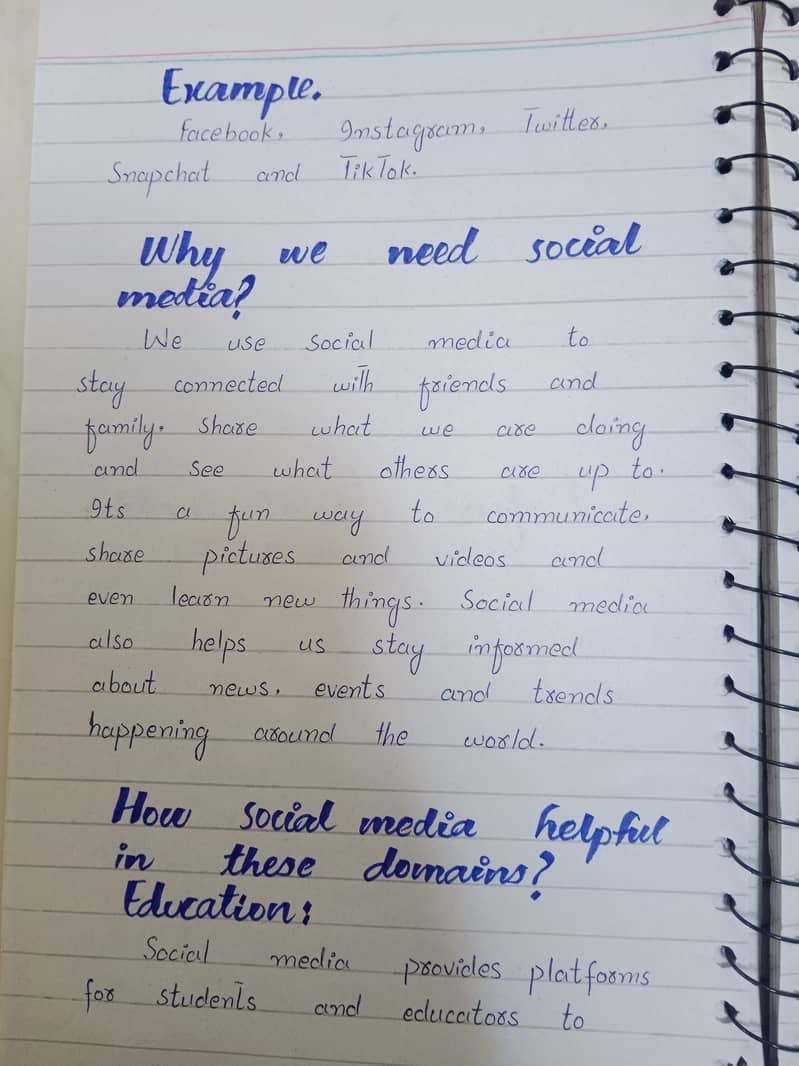 Example.
Facebook, Instagram, Twitter,
Snapchat and TikTok.
Why we need social
media?
We use social media to
stay connected with friends and
family. Share what we are doing
and see what others are up to.
Its a fun way to communicate,
share pictures and videos and
even learn new things. Social media
also helps us stay informed
about news, events and trends
happening around the world.
How social media helpful
in these domains?
Education:
Social media provides platforms
for students and educators to